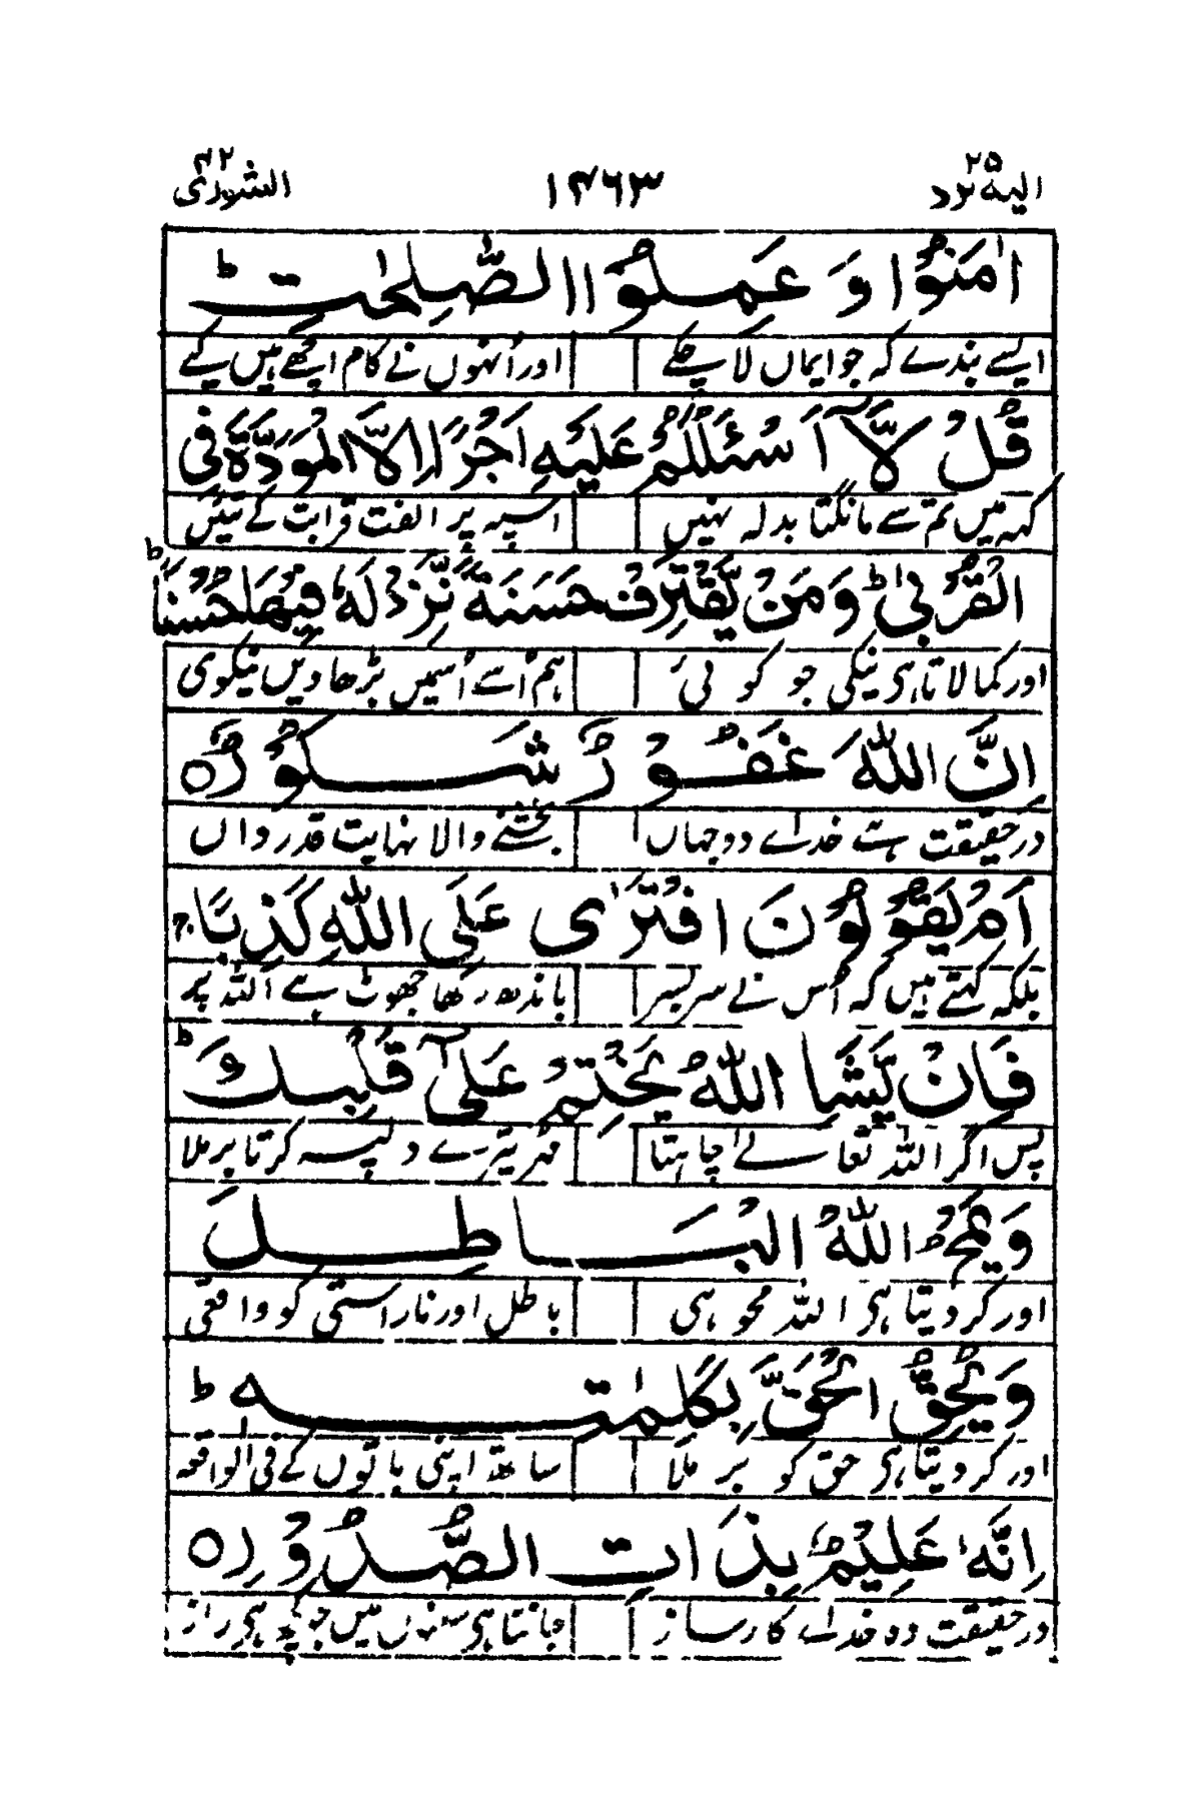 الیه یرد ۲۵ ۱۴۶۳ الشوریٰ ۴۲
اٰمَنُوْا وَ عَمِلُوا الصّٰلِحٰتِ ؕ
ایسے بندے کہ جو ایماں لا چکے اور اُنہوں نے کام اچھے ہیں کیے
قُلْ لَّاۤ اَسْـَٔلُكُمْ عَلَیْهِ اَجْرًا اِلَّا الْمَوَدَّةَ فِی
کہہ میں تم سے مانگتا بدلہ نہیں اسپہ پر الفت قرابت کے تئیں
الْقُرْبٰی ؕ وَ مَنْ یَّقْتَرِفْ حَسَنَةً نَّزِدْ لَهٗ فِیْهَا حُسْنًا ؕ
اور کما لاتا ہی نیکی جو کوئی ہم اُسے اُسمیں بڑھا دیں نیکوی
اِنَّ اللّٰهَ غَفُوْرٌ شَكُوْرٌ ۝
درحقیقت ہے خداے دو جہاں بخشنے والا نہایت قدرداں
اَمْ یَقُوْلُوْنَ افْتَرٰی عَلَی اللّٰهِ كَذِبًا ۚ
بلکہ کہتے ہیں کہ اُس نے سر بسر باندھ رکھا جھوٹ ہے اللہ پر
فَاِنْ یَّشَاِ اللّٰهُ یَخْتِمْ عَلٰی قَلْبِكَ ؕ
پس اگر اللہ تعالےٰ چاہتا مہر تیرے دلپہ کرتا برملا
وَ یَمْحُ اللّٰهُ الْبَاطِلَ
اور کر دیتا ہی اللہ محو ہی باطل اور ناراستی کو واقعی
وَ یُحِقُّ الْحَقَّ بِكَلِمٰتِهٖ ؕ
اور کر دیتا ہی حق کو برملا ساتھ اپنی باتوں کے فی الواقعہ
اِنَّهٗ عَلِیْمٌۢ بِذَاتِ الصُّدُوْرِ ۝
درحقیقت وہ خداے کارساز جانتا ہی سینوں میں جو کچھ ہی راز